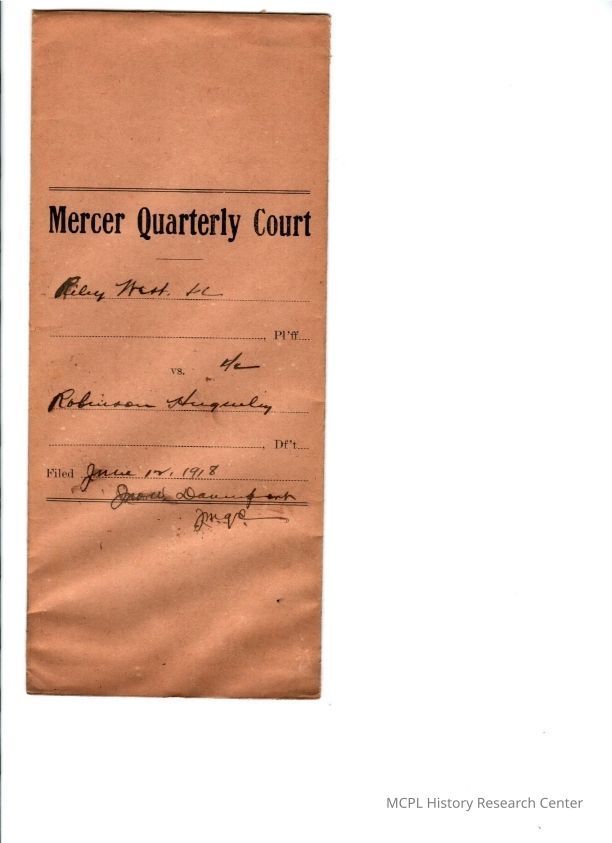 Mercer Quarterly Court
Riley West. &c
Pl'ff
vs. a/c
Robinson Huguely
Df't
Filed June 12, 1918
Davenport
JMQC
MCPL History Research Center